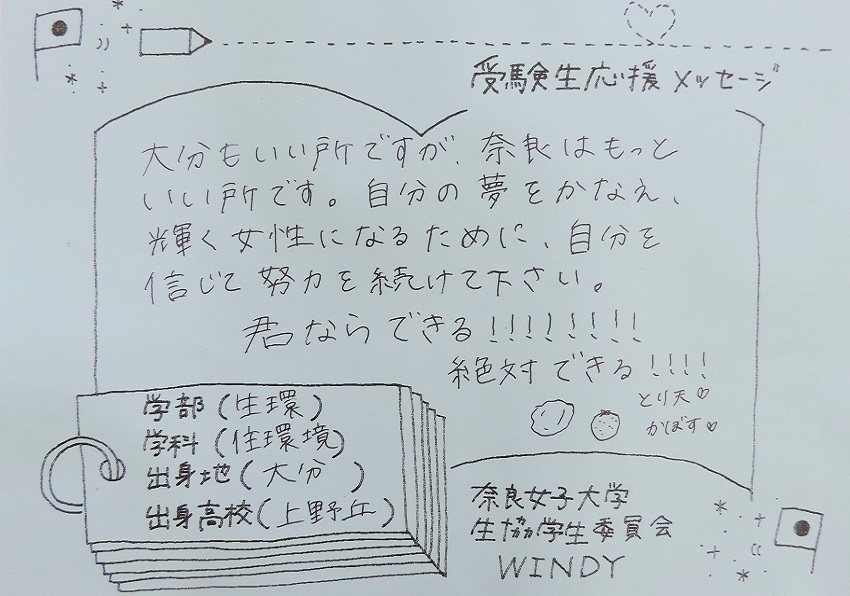 受験生応援メッセージ
大分もいい所ですが、奈良はもっと
いい所です。自分の夢をかなえ、
輝く女性になるために、自分を
信じて努力を続けて下さい。
君ならできる!!!!!!!!
絶対できる!!!!
とり天♡
かぼす♡
学部(生環)
学科(住環境)
出身地(大分)
出身高校(上野丘)
奈良女子大学
生協学生委員会
WINDY